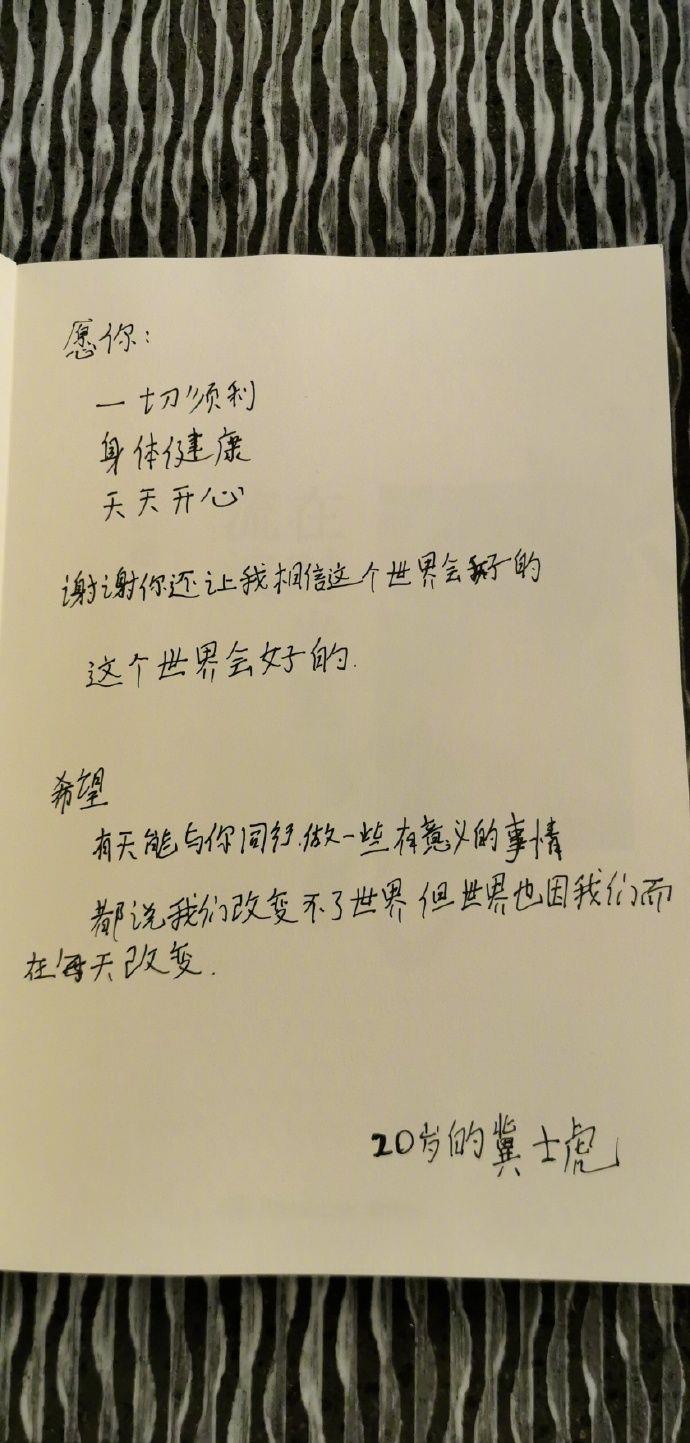 愿你：
一切顺利
身体健康
天天开心
谢谢你还让我相信这个世界会好的
这个世界会好的.
希望
有天能与你同行.做一些有意义的事情
都说我们改变不了世界 但世界也因我们而
在每天改变.
20岁的冀士虎